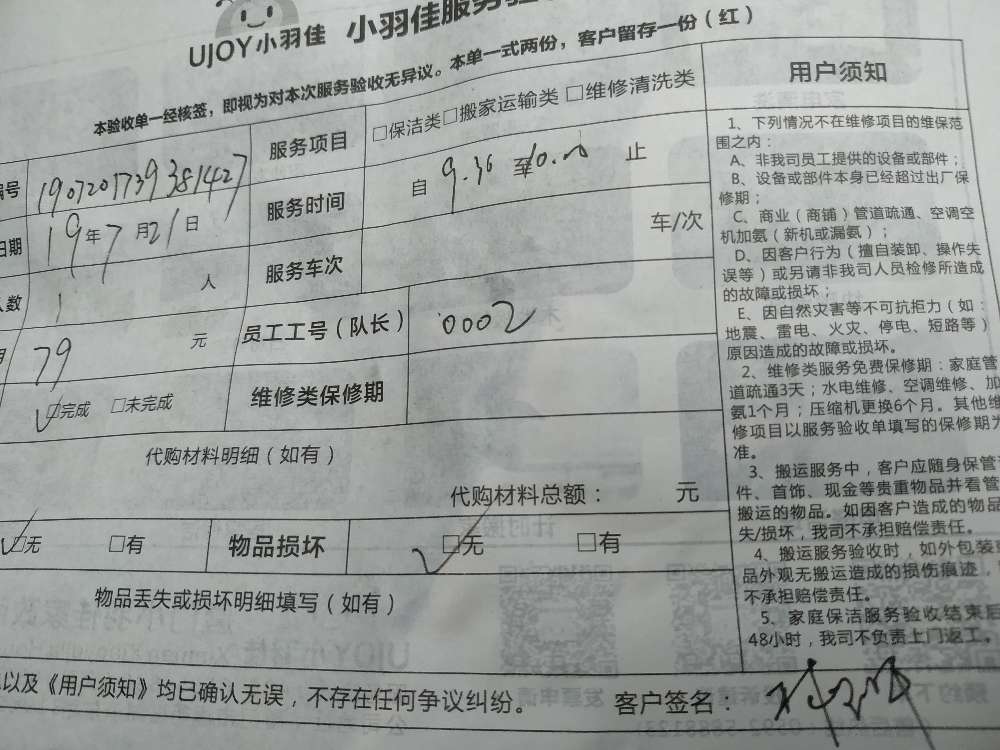 UJOY小羽佳 小羽佳服务验
本验收单一经核签，即视为对本次服务验收无异议。本单一式两份，客户留存一份（红）
编号 1907201739381427
服务项目 □保洁类□搬家运输类 □维修清洗类
日期 19年7月21日
服务时间 自 9.30 至10.00 止
人数 1 人
服务车次 车/次
79 元
员工工号（队长） 0002
□完成 □未完成
维修类保修期
代购材料明细（如有）
代购材料总额： 元
□无 □有 物品损坏 □无 □有
物品丢失或损坏明细填写（如有）
以及《用户须知》均已确认无误，不存在任何争议纠纷。
客户签名：
用户须知
1、下列情况不在维修项目的维保范
围之内：
A、非我司员工提供的设备或部件；
B、设备或部件本身已经超过出厂保
修期；
C、商业（商铺）管道疏通、空调空
机加氨（新机或漏氨）；
D、因客户行为（擅自装卸、操作失
误等）或另请非我司人员检修所造成
的故障或损坏；
E、因自然灾害等不可抗拒力（如：
地震、雷电、火灾、停电、短路等）
原因造成的故障或损坏。
2、维修类服务免费保修期：家庭管
道疏通3天；水电维修、空调维修、加
氨1个月；压缩机更换6个月。其他维
修项目以服务验收单填写的保修期为
准。
3、搬运服务中，客户应随身保管
件、首饰、现金等贵重物品并看管
搬运的物品。如因客户造成的物品
失/损坏，我司不承担赔偿责任。
4、搬运服务验收时，如外包装
品外观无搬运造成的损伤痕迹，
不承担赔偿责任。
5、家庭保洁服务验收结束后
48小时，我司不负责上门返工。